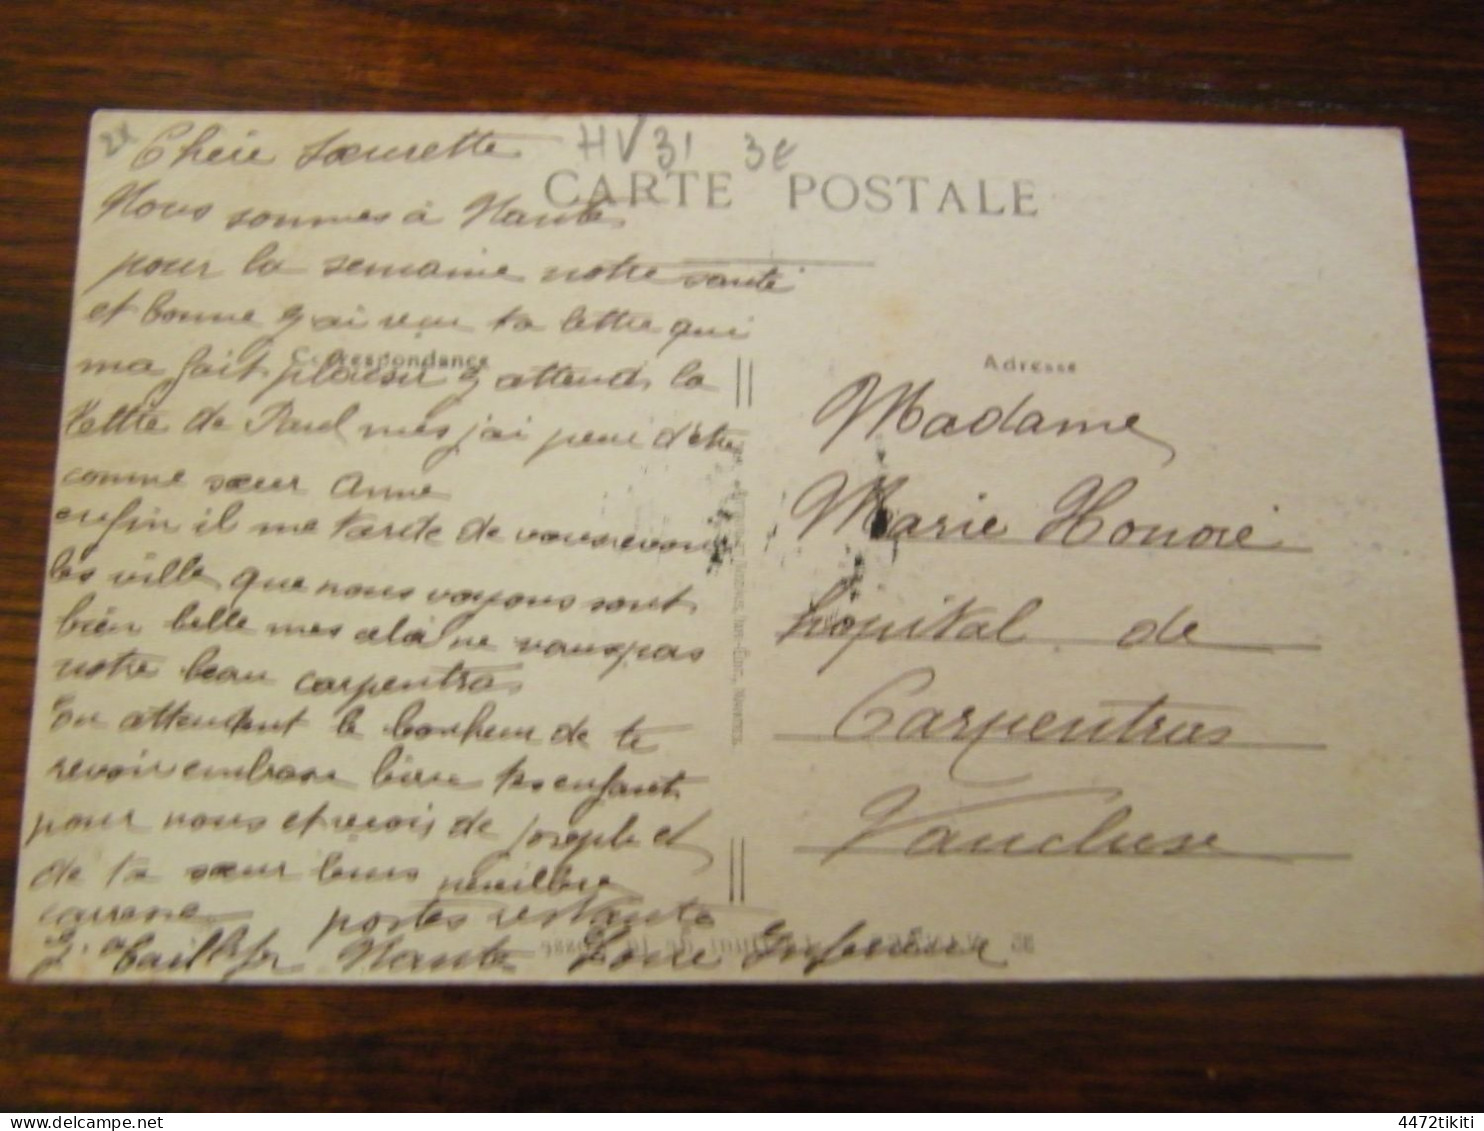 2x
HV31 3e
CARTE POSTALE
Chère Sœurette
Nous sommes à Nante
pour la semaine notre santé
et bonne j ai recu ta lettre qui
ma fait plaisir j attend la
lettre de Paul mes j'ai peur d'être
comme sœur Anne
enfin il me tarde de vous revoir
les ville que nous voyons sont
bien belle mes cela ne vaux pas
notre beau carpentras
En attendant le bonheur de te
revoir embrase bien les enfant
pour nous et recois de Joseph et
de ta sœur leurs meillere
carrese postes restante
Nante Loire Inferieure
Correspondance
Adresse
Madame
Marie Honoré
hopital de
Carpentras
Vaucluse
4472tikiti